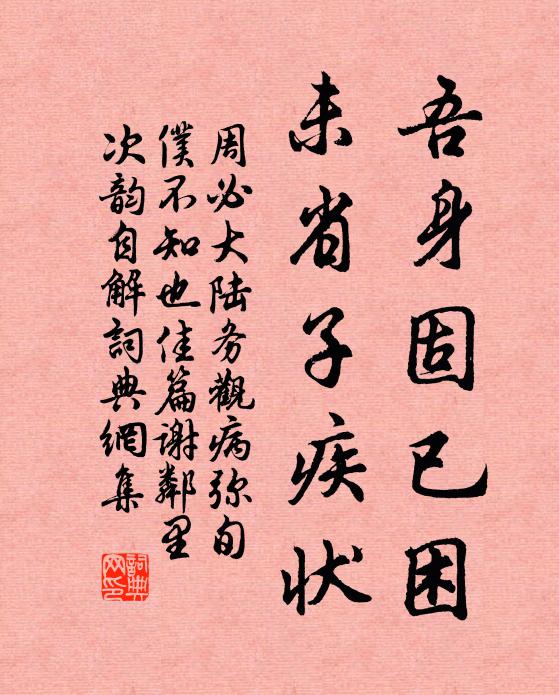 吾身固已困
未省子疾状
周必大陆务觀病弥旬
僕不知也佳篇谢鄰里
次韵自解詞典網集
詞典網印